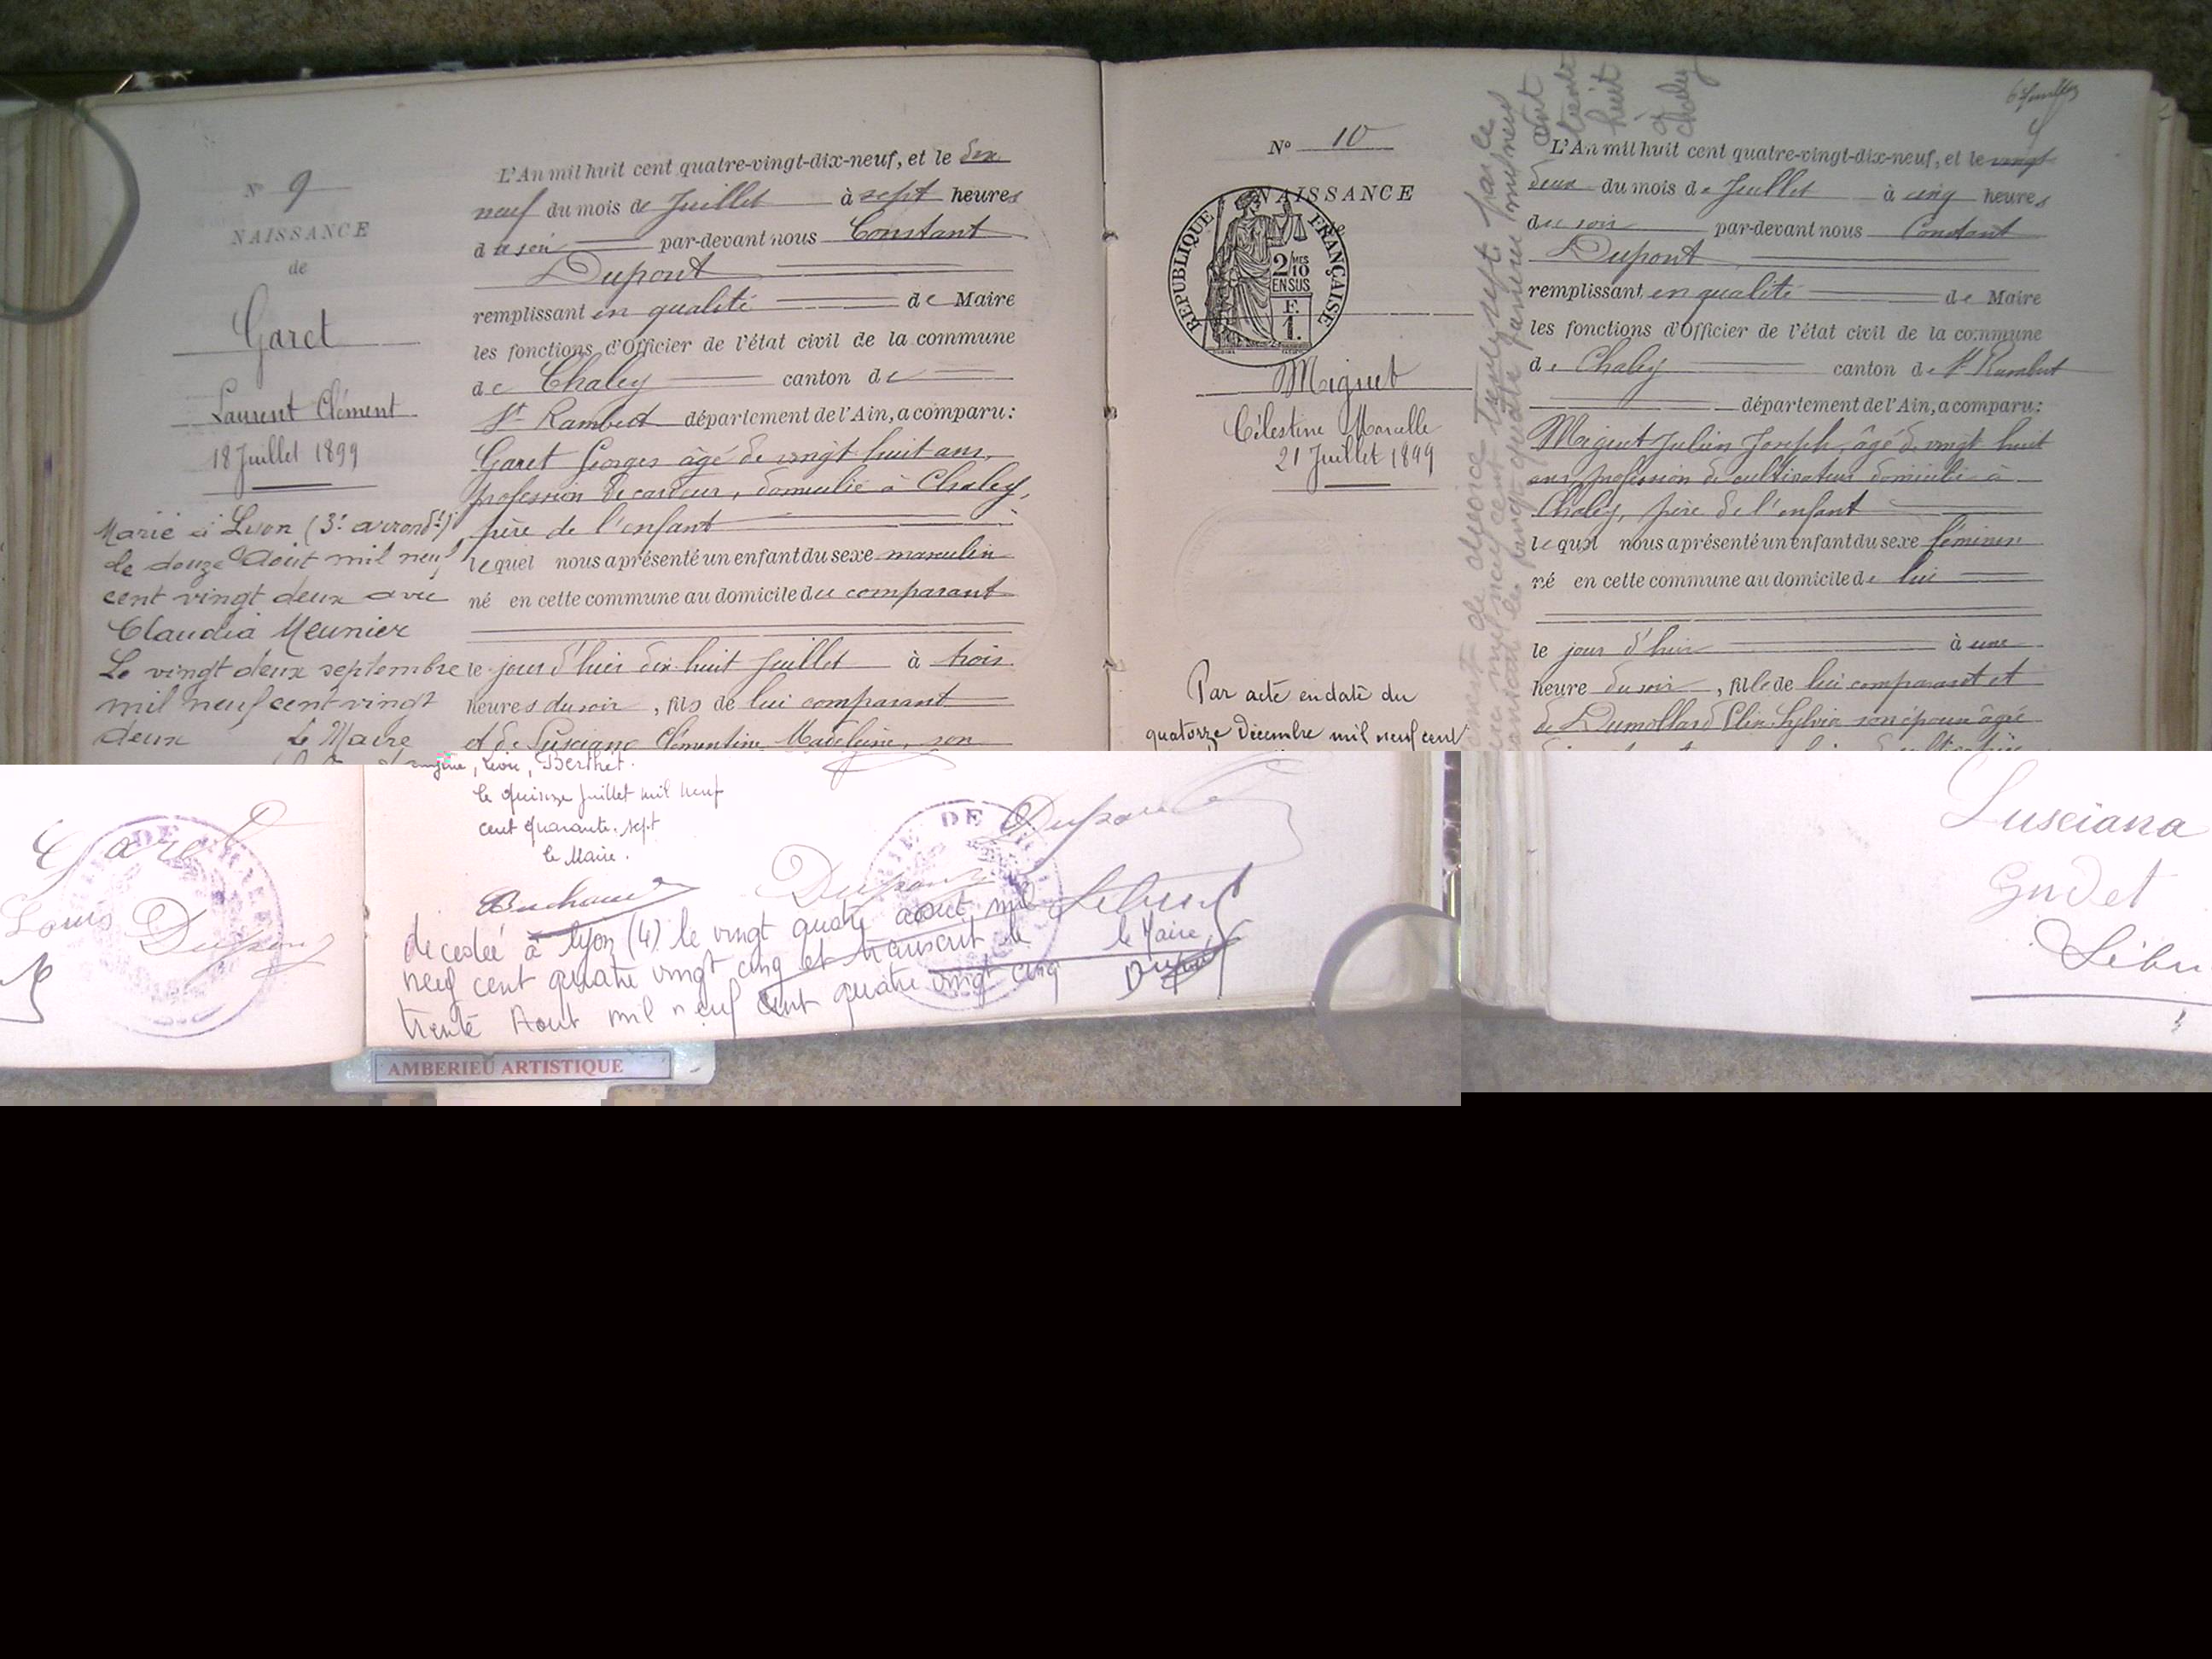 N° 9
NAISSANCE
de
Garet
Laurent Clément
18 Juillet 1899
Marié à Lyon (3e arrondt)
le douze Aout mil neuf
cent vingt deux avec
Claudia Meunier
Le vingt deux septembre
mil neuf cent vingt
deux Le Maire
L'An mil huit cent quatre-vingt-dix-neuf, et le dix
neuf du mois de Juillet à sept heures
du soir par-devant nous Constant
Dupont
remplissant en qualité de Maire
les fonctions d'Officier de l'état civil de la commune
de Chaley canton de
St Rambert département de l'Ain, a comparu:
Garet Georges âgé de vingt huit ans,
profession de cardeur, domicilié à Chaley,
père de l'enfant
lequel nous a présenté un enfant du sexe masculin
né en cette commune au domicile du comparant
le jour d'hier dix huit Juillet à trois
heures du soir, fils de lui comparant
et de Lusciana Clémentine Madeleine, son
N° 10
NAISSANCE
de
REPUBLIQUE FRANÇAISE
2/10 MES
EN SUS
F.
1.
Miguet
Célestine Marcelle
21 Juillet 1899
Par acte en date du
quatorze Décembre mil neuf cent
6 feuillets
L'An mil huit cent quatre-vingt-dix-neuf, et le vingt
deux du mois de Juillet à cinq heures
du soir par-devant nous Constant
Dupont
remplissant en qualité de Maire
les fonctions d'Officier de l'état civil de la commune
de Chaley canton de St Rambert
département de l'Ain, a comparu:
Miguet Julien Joseph, âgé de vingt huit
ans, profession de cultivateur domicilié à
Chaley, père de l'enfant
lequel nous a présenté un enfant du sexe féminin
né en cette commune au domicile de lui
le jour d'hier à une
heure du soir, fille de lui comparant et
de Dumollard Sylvie son épouse âgée
de divorce par le
huit
à
Chaley
Léon, Berthet.
le quinze juillet mil neuf
cent quarante-sept
le Maire.
Garet
Louis Dupont
DE
Dupont
Dupont
décedée à Lyon (4) le vingt quatre aout mil
neuf cent quatre vingt cinq et transcrit le
trente Aout mil neuf cent quatre vingt cinq
le Maire
AMBERIEU ARTISTIQUE
Lusciana
Gudet